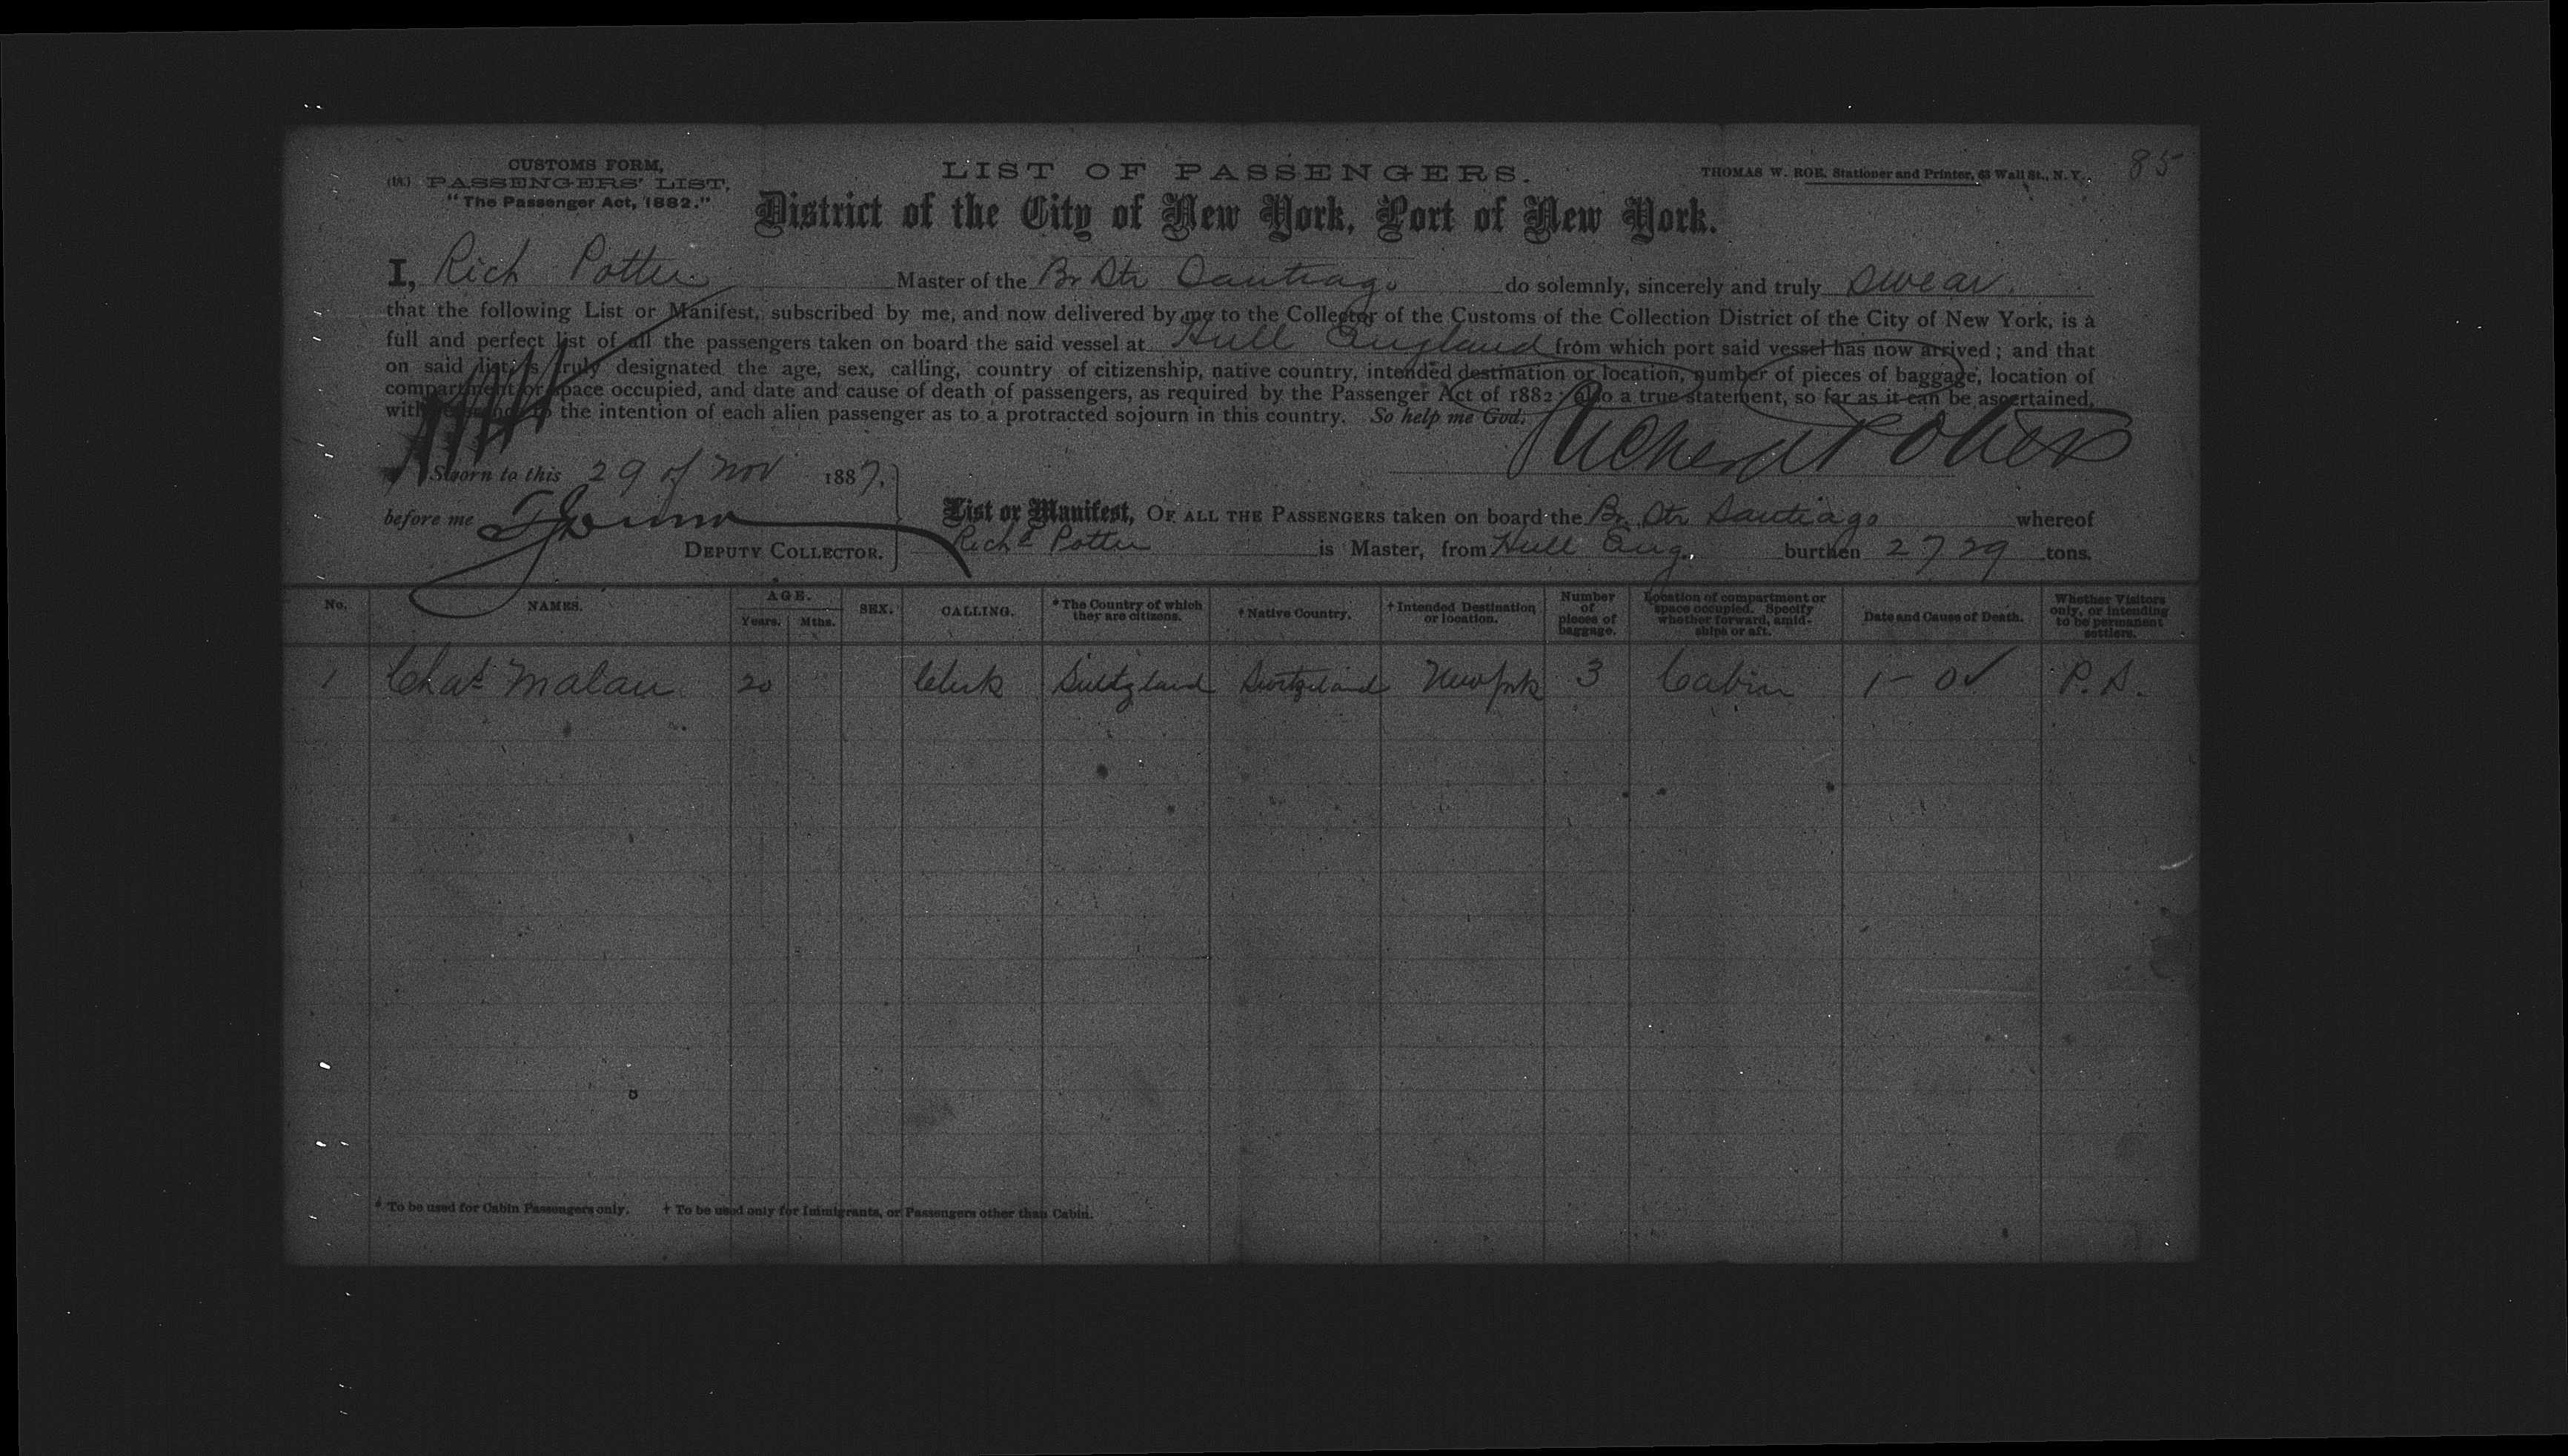 CUSTOMS FORM,
PASSENGERS' LIST,
"The Passenger Act, 1882."
LIST OF PASSENGERS.
THOMAS W. ROE, Stationer and Printer, 63 Wall St., N. Y.
85
District of the City of New York, Port of New York.
I, Rich Potter Master of the Br Str Santiago do solemnly, sincerely and truly swear.
that the following List or Manifest, subscribed by me, and now delivered by me to the Collector of the Customs of the Collection District of the City of New York, is a
full and perfect list of all the passengers taken on board the said vessel at Hull England from which port said vessel has now arrived; and that
on said list is truly designated the age, sex, calling, country of citizenship, native country, intended destination or location, number of pieces of baggage, location of
compartment or space occupied, and date and cause of death of passengers, as required by the Passenger Act of 1882; also a true statement, so far as it can be ascertained,
with reference to the intention of each alien passenger as to a protracted sojourn in this country. So help me God.
Richard Potter
Sworn to this 29 of Nov 1887,
before me
DEPUTY COLLECTOR.
List or Manifest, OF ALL THE PASSENGERS taken on board the Br Str Santiago whereof
Richd Potter is Master, from Hull Eng. burthen 2729 tons.
No. NAMES. AGE. Years. Mths. SEX. CALLING. * The Country of which they are citizens. † Native Country. † Intended Destination or location. Number of pieces of baggage. Location of compartment or space occupied. Specify whether forward, amidships or aft. Date and Cause of Death. Whether Visitors only, or intending to be permanent settlers.
1 Chas Malau 20 Clerk Suitzland Switzeland New York 3 Cabin 1 - 0 ✓ P. S.
* To be used for Cabin Passengers only. † To be used only for Immigrants, or Passengers other than Cabin.